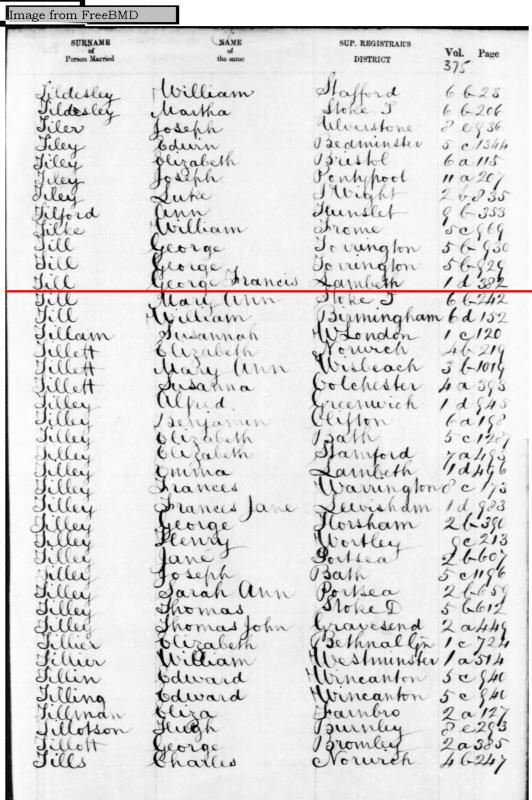 Image from FreeBMD
SURNAME of Person Married NAME of the same SUP. REGISTRAR'S DISTRICT Vol. Page
375
Tildesley William Stafford 6 b 23
Tildesley Martha Stoke T 6 b 206
Tiler Joseph Ulverstone 8 e 936
Tiley Edwin Bedminster 5 c 1344
Tiley Elizabeth Bristol 6 a 115
Tiley Joseph Pontypool 11 a 207
Tiley Luke I Wight 2 b 835
Tilford Ann Hunslet 9 b 353
Tilke William Frome 5 c
Till George Torrington 5 b 930
Till George Torrington 5 b 929
Till George Francis Lambeth 1 d 382
Till Mary Ann Stoke T 6 b 242
Till William Birmingham 6 d 152
Tillam Susannah W London 1 c 120
Tillett Elizabeth Norwich 4 b 219
Tillett Mary Ann Wisbeach 3 b 1019
Tillett Susanna Colchester 4 a 393
Tilley Alfred Greenwich 1 d 945
Tilley Benjamin Clifton 6 a 198
Tilley Elizabeth Bath 5 c
Tilley Elizabeth Stamford 7 a 493
Tilley Emma Lambeth 1 d 496
Tilley Frances Warrington 8 c 173
Tilley Frances Jane Lewisham 1 d 983
Tilley George Horsham 2 b 390
Tilley Henry Wortley 9 c 213
Tilley Jane Portsea 2 b 607
Tilley Joseph Bath 5 c 1196
Tilley Sarah Ann Portsea 2 b 659
Tilley Thomas Stoke D 5 b 612
Tilley Thomas John Gravesend 2 a 449
Tillier Elizabeth Bethnal Gn 1 c 724
Tillier William Westminster 1 a 514
Tillin Edward Wincanton 5 c 940
Tilling Edward Wincanton 5 c 940
Tillman Eliza Farnbro 2 a 127
Tillotson Hugh Burnley 8 e 293
Tillott George Bromley 2 a 385
Tills Charles Norwich 4 b 247